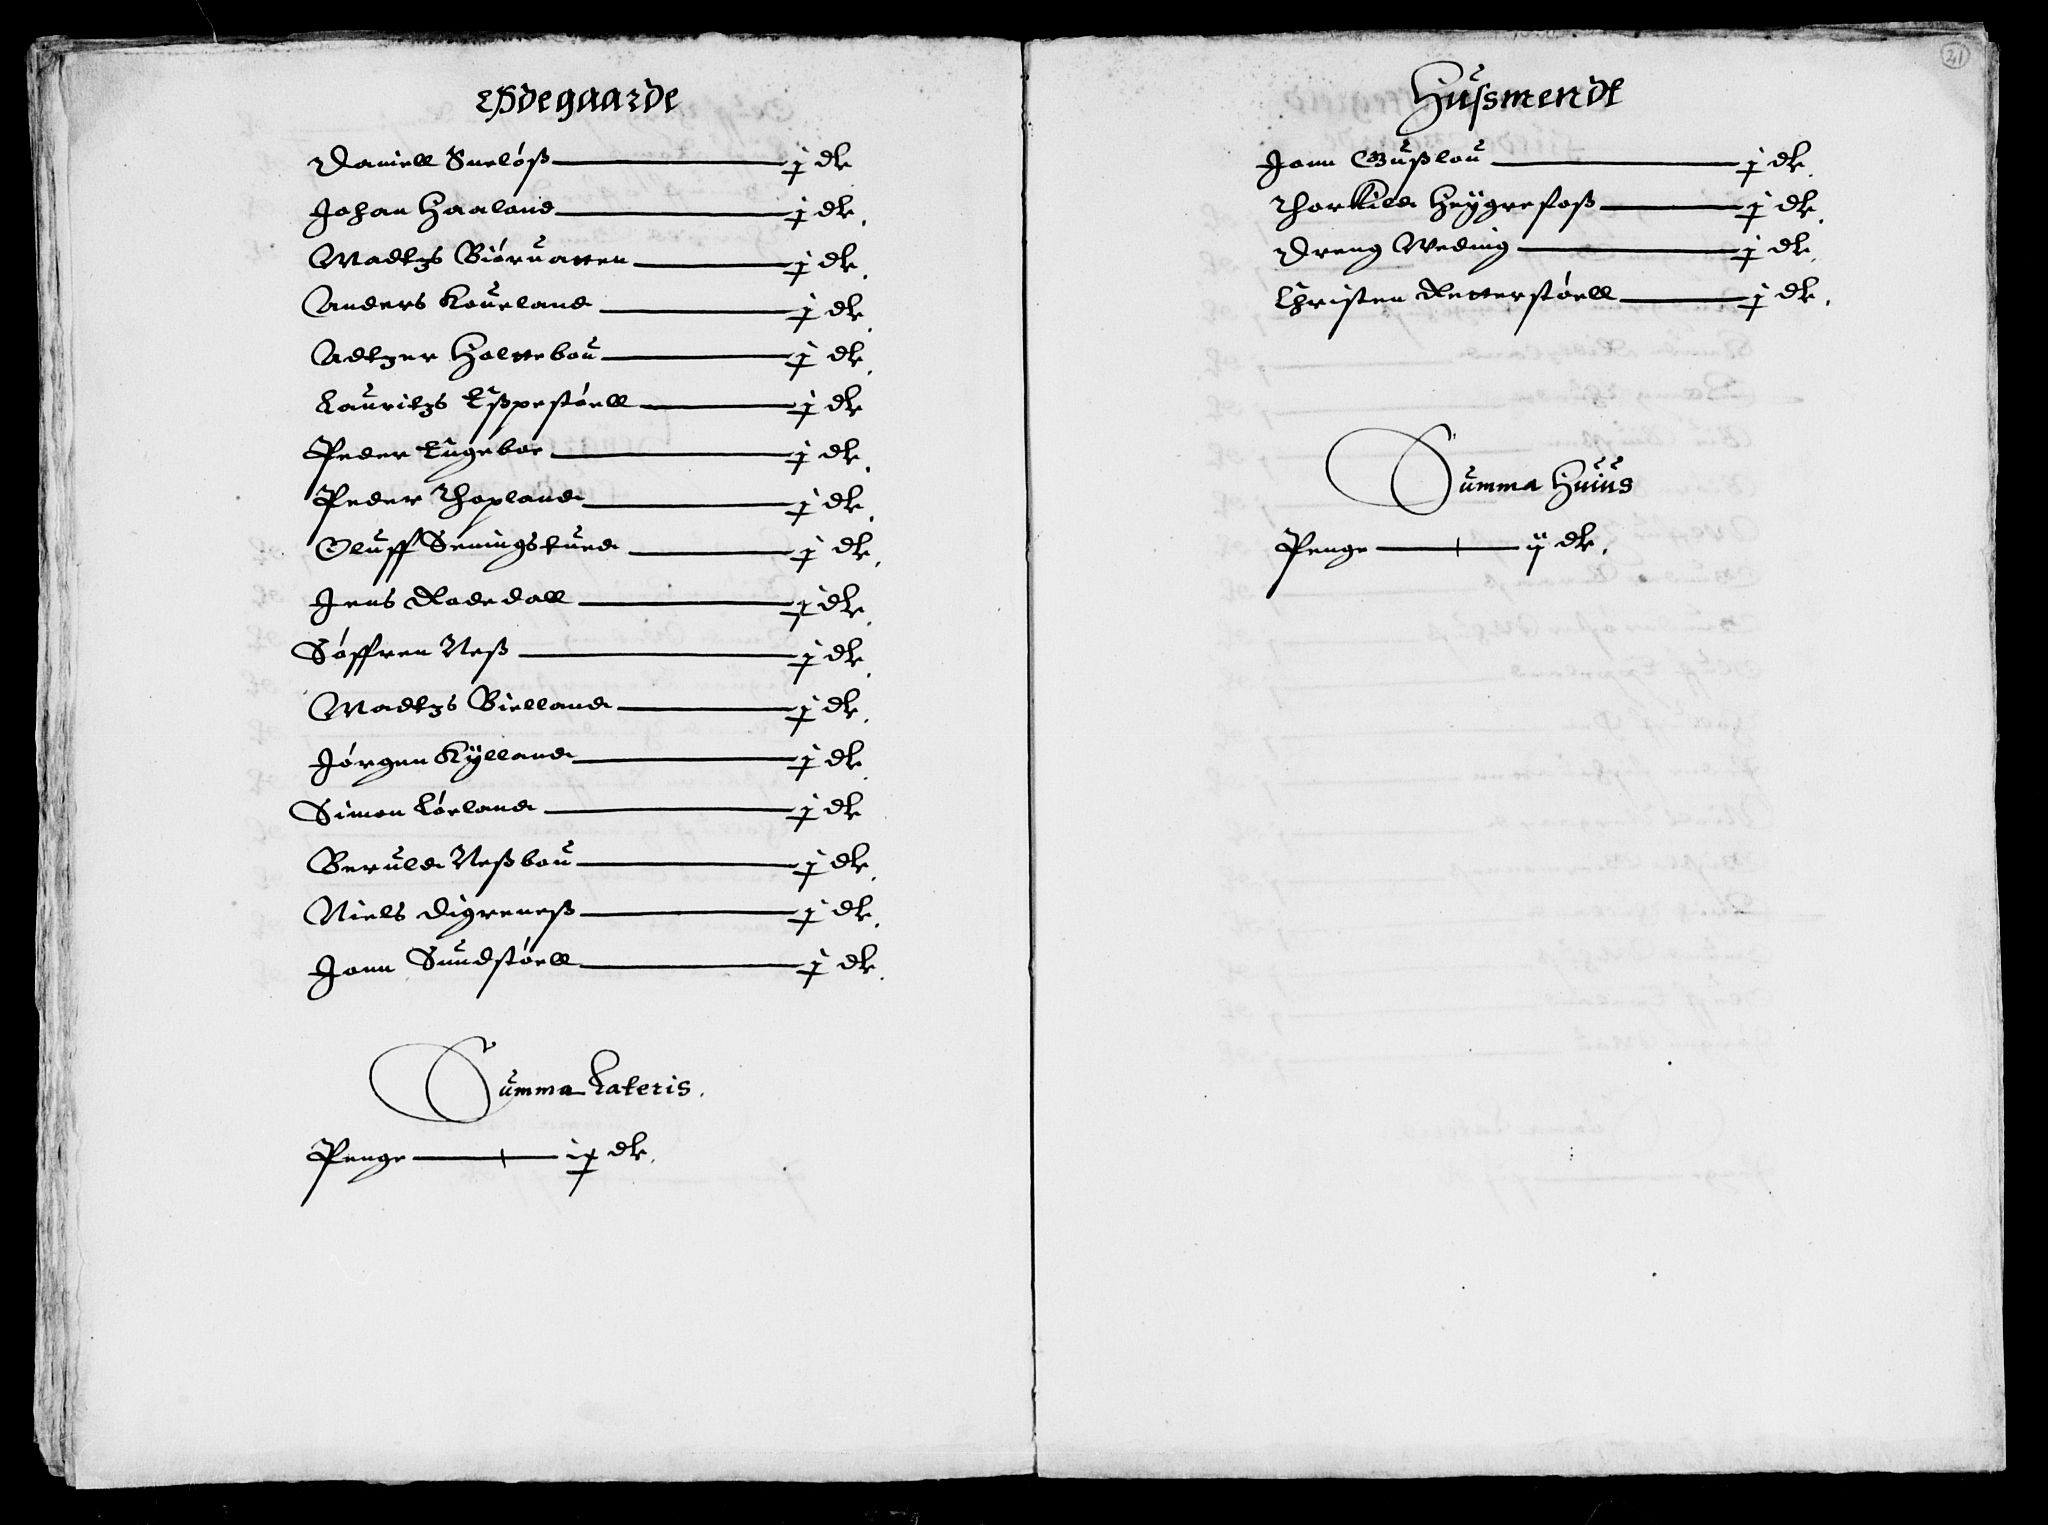 Ødegaarde
Daniell Sueløß j dlr
Johan Haaland j dlr.
Madtzs Biøruatten j dlr.
Anders Kouland j dlr.
Adtzer Holttebou j dlr.
Lauritzs Eßpestøell j dlr
Peder Lugeboe j dlr.
Peder Thopland j dlr.
Oluff Seningstued j dlr.
Jens Rodedall j dlr.
Søffren Neß j dlr.
Madtzs Bielland j dlr.
Jørgen Kÿlland j dlr.
Simon Lørland j dlr
Beruld Neßbou j dlr.
Niels Digreneß j dlr.
Jonn Sundstøell j dlr.
Summa Lateris.
Penge dlr.
21
Hussmendt
Jonn Gußlou j dlr.
Thorkild Heÿgrefoß j dlr.
Dreng Weding j dlr.
Christen Retterstøell j dlr.
Summa Huius
Penge ij dlr.